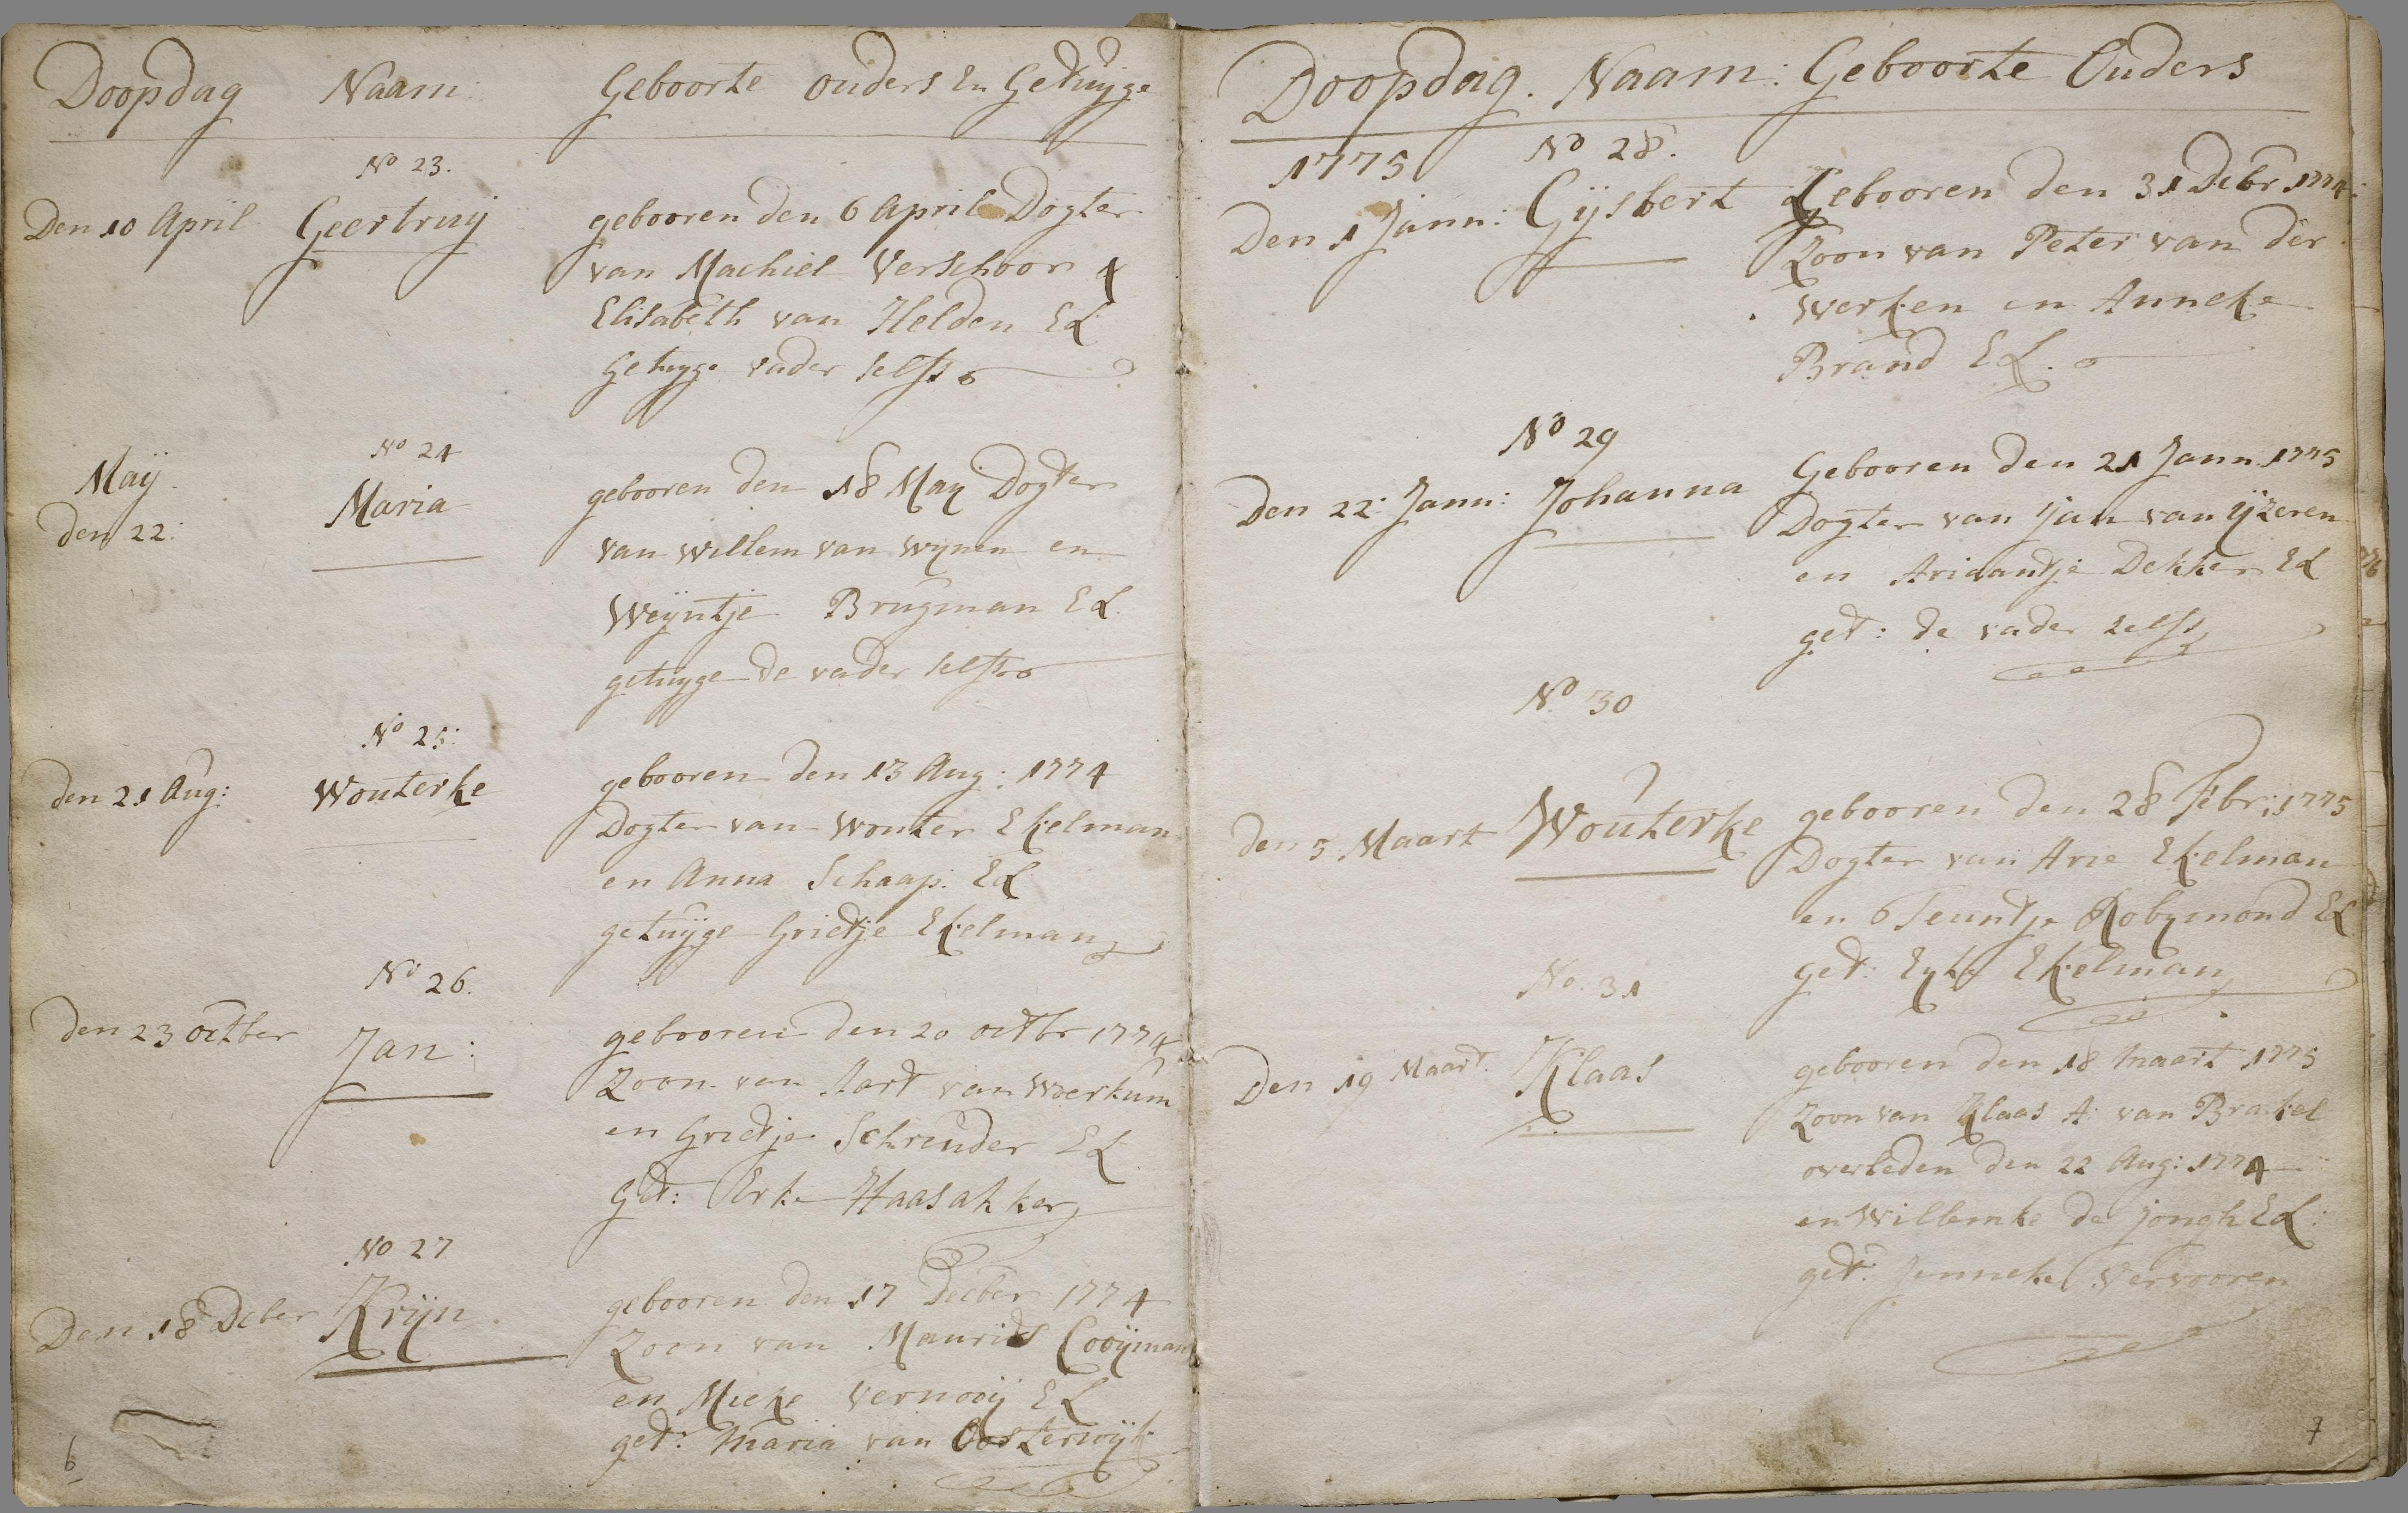 Doopdag Naam: Geboorte ouders En Getuyge
No 23.
Den 10 April Geertruij gebooren den 6 April Dogter
van Machiel Verschoor &
Elisabeth van Helden EL
Getuyge vader selfs
No 24
Maij gebooren den 18 May Dogter
den 22: Maria
van Willem van Wynen en
Weijntje Brugman EL
getuyge de vader selfs
No 25:
den 21 Aug: Wouterke gebooren den 13 Aug: 1774
Dogter van Wouter Ekelman
en Anna Schaap: EL
getuijge Grietje Ekelman
No 26.
den 23 octber Jan: gebooren den 20 octbr 1774
Zoon van Aart van Woerkum
en Grietje Schreuder EL
Get: Erke Haasakker
No 27
Den 18 Dcber Krijn gebooren den 17 Decber 1774
Zoon van Maurids Cooijman
en Mieke Vernooij EL
get: Maria van Oosterwijk
6
Doopdag. Naam: Geboorte Ouders
1775 No 28.
Den 1 Jann: Gijsbert Gebooren den 31 Debr 1774:
Zoon van Peter van der
Werken en Anneke
Brand EL.
No 29
Den 22: Jann: Johanna Gebooren den 21 Jann. 1775
Dogter van Jan van IJzeren
en Ariaantje Dekker EL
get: de vader zelfs
No 30
den 5 Maart Wouterke gebooren den 28 Febr: 1775
Dogter van Arie Ekelman
en Teuntje Robymond EL
get: Eyke Ekelman
No. 31
Den 19 Maart. Klaas gebooren den 18 Maart 1775
Zoon van Klaas A: van Brakel
overleden den 22 Aug: 1774
en Willemke de jongh EL:
get: Jenneke Vervooren
7